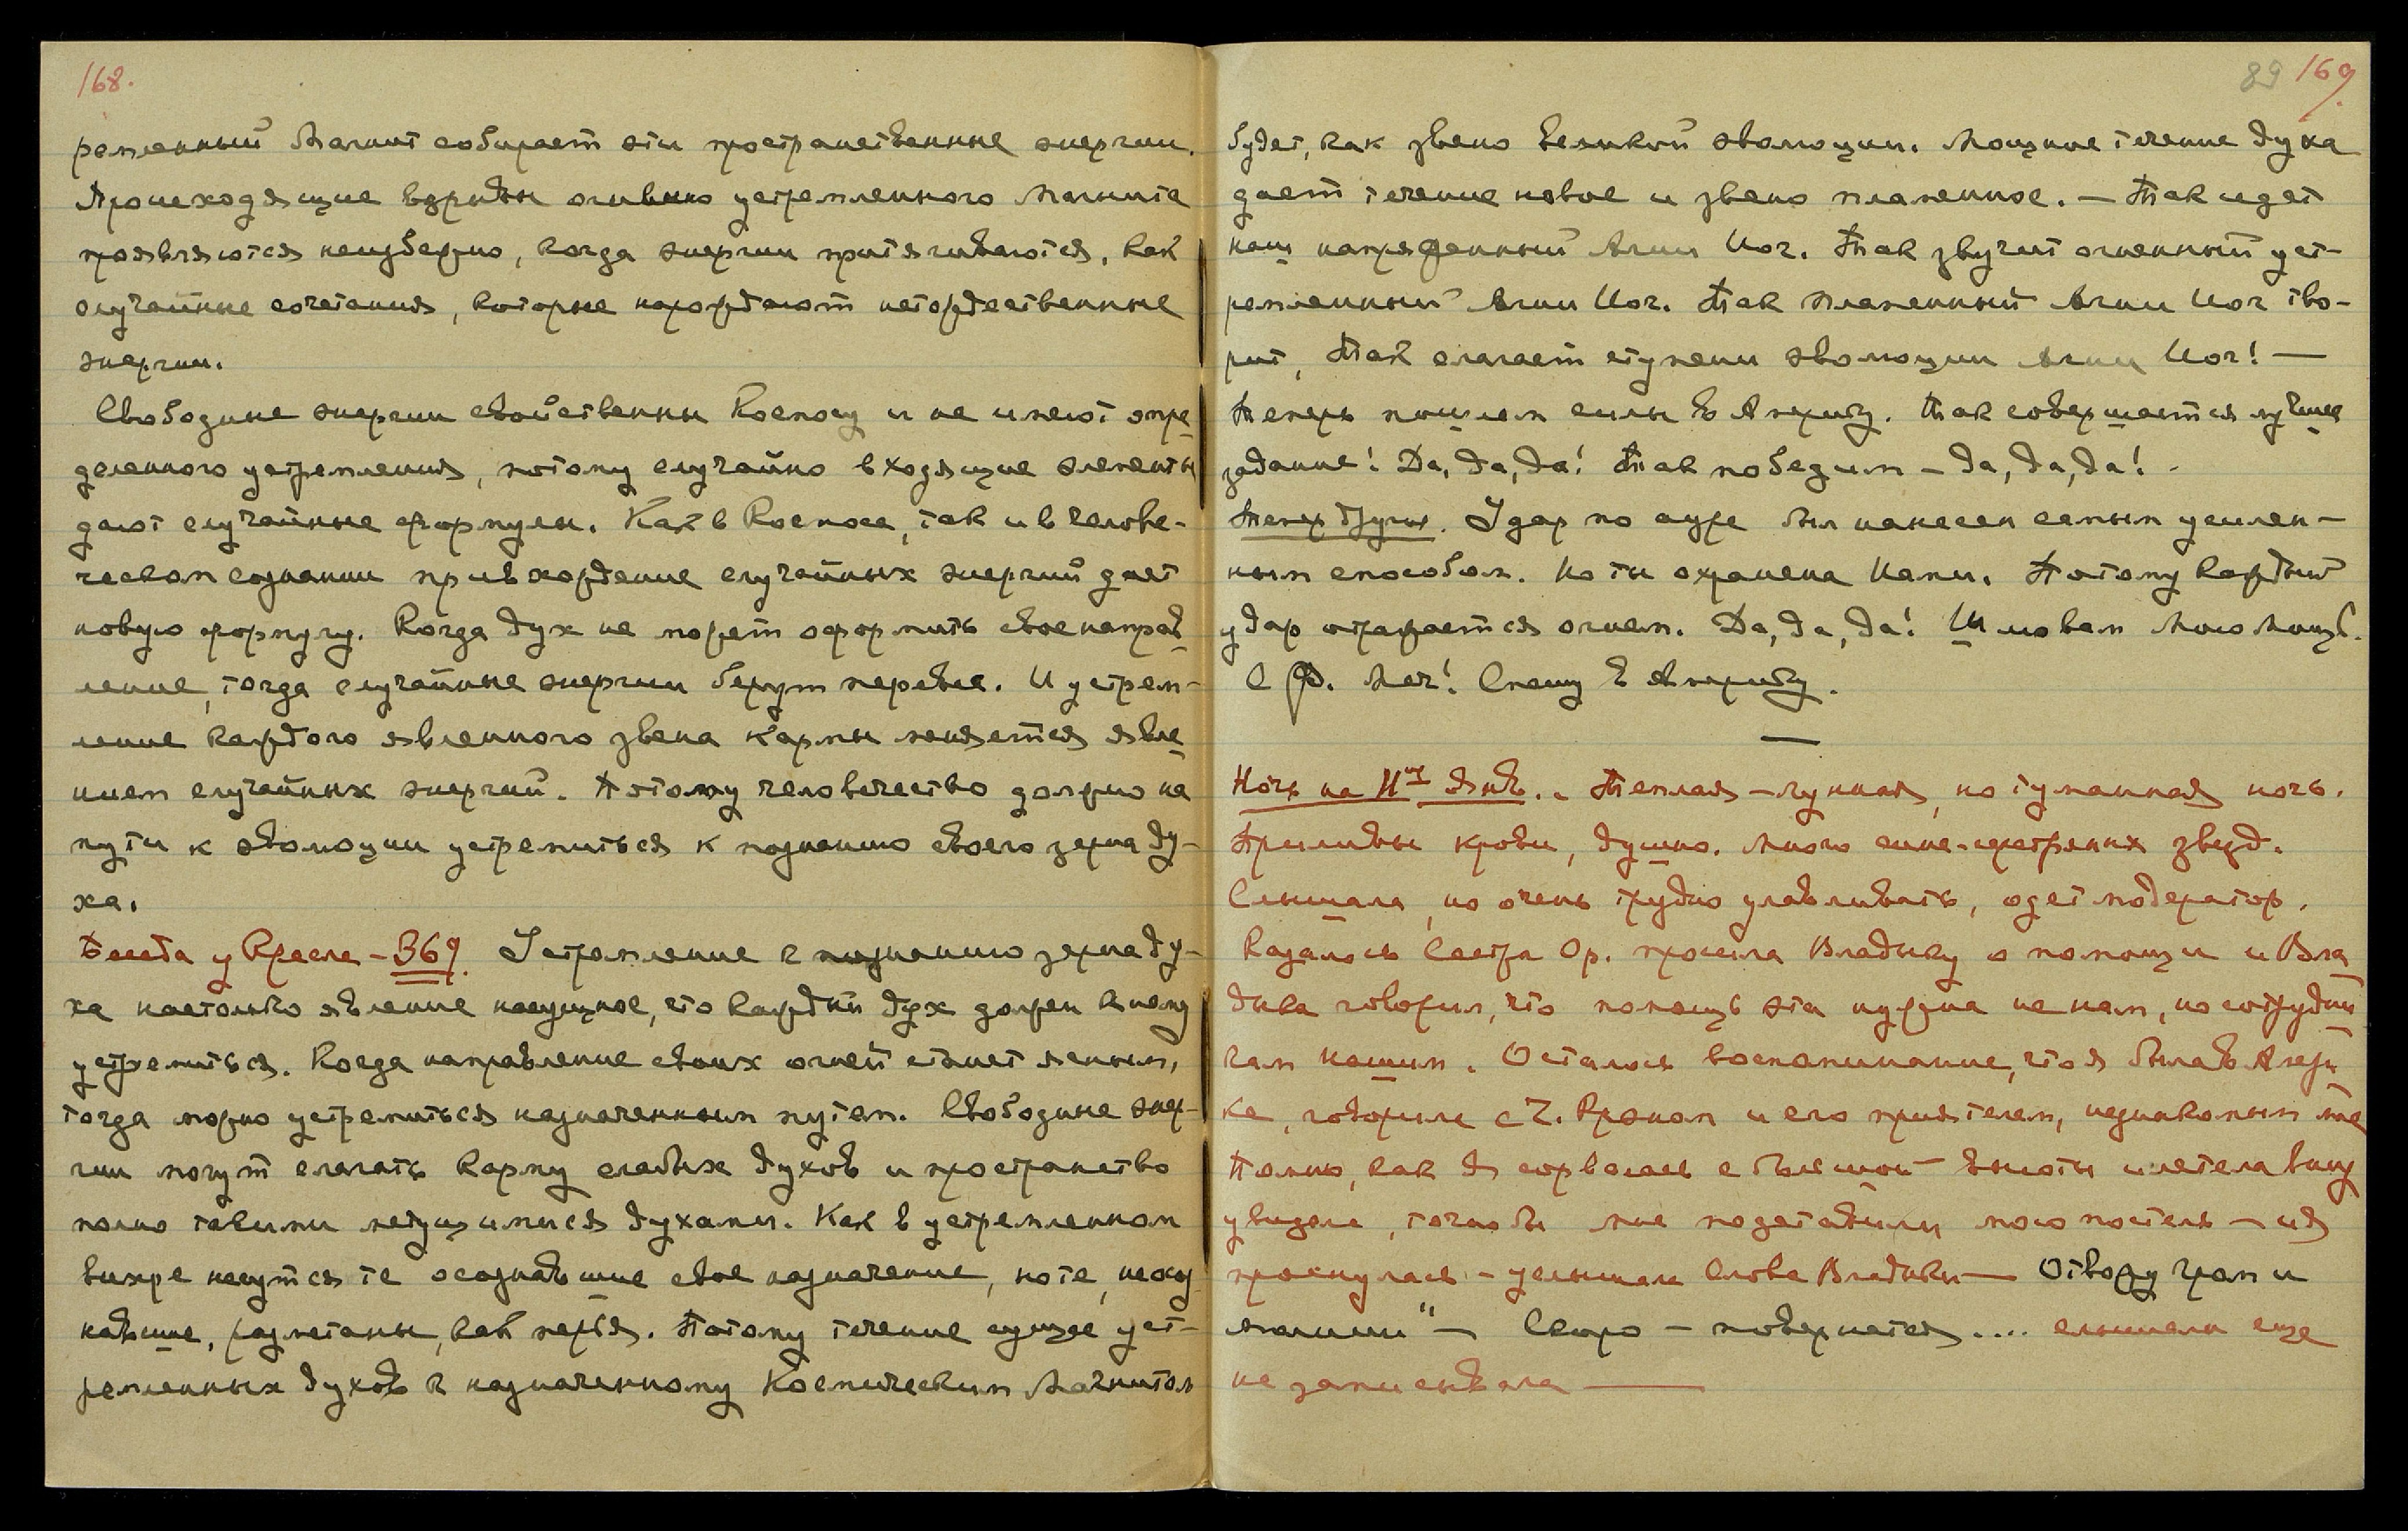 168.
ремленный Магнит собирает эти пространственные энергии.
Происходящие взрывы огненно устремленного Магнита
проявляются неизбежно, когда энергии притягиваются, как
случайные сочетания, которые порождают нетождественные
энергии.
Свободные энергии свойственны Космосу и не имеют опре
деленного устремления, потому случайно входящие элементы
дают случайные формулы. Как в Космосе, так и в челове-
ческом сознании привхождение случайных энергий дает
новую формулу. Когда дух не может оформить свое направ
ление, тогда случайные энергии берут перевес. И устрем-
ление каждого явленного звена кармы меняется явле
нием случайных энергий. Потому человечество должно на
пути к эволюции устремиться к познанию своего зерна ду-
ха.
Беседа у Кресла – 369. Устремление к познанию зерна ду-
ха настолько явление насущное, что каждый дух должен к нему
устремиться. Когда направление своих огней станет ясным,
тогда можно устремиться назначенным путем. Свободные энер-
гии могут слагать карму слабых духов и пространство
полно такими мятущимися духами. Как в устремленном
вихре несутся те осознавшие свое назначение, но те, неосоз
навшие, разметаны, как перья. Потому течение сущее уст-
ремленных духов к назначенному Космическим Магнитом
89 169.
будет, как звено великой эволюции. Мощное течение духа
дает течение новое и звено пламенное. — Так идет
наш напряженный Агни Йог. Так звучит огненный уст-
ремленный Агни Йог. Так пламенный Агни Йог тво-
рит, так слагает ступени эволюции Агни Йог! —
Теперь пошлем силы в Америку. Так совершается лучшее
задание! Да, да, да! Так победим – да, да, да! -
Теперь другое. Удар по ауре был нанесен самым усилен-
ным способом. Но ты охранена Нами. Потому каждый
удар отражается огнем. Да, да, да! Шлю вам Мою Мощь.
С Ф. Меч! Спешу в Америку.
—
Ночь на 11ое Янв. Теплая – лунная, но туманная ночь.
Приливы крови, душно. Много сине-серебряных звезд.
Слышала, но очень трудно улавливать, одет модератор.
Казалось Сестра Ор. просила Владыку о помощи и Вла
дыка говорил, что помощь эта нужна не нам, но сотрудни
кам нашим. Осталось воспоминание, что я была в Амери
ке, говорила с Ч. Крэном и его приятелем, незнакомым мне
Помню, как я сорвалась с большой высоты и летела вниз
увидела, точно бы мне подставили мою постель – и я
проснулась – услышала Слова Владыки — Отвожу гром и
молнии" — Скоро – повернется.... слышала еще
не записывала ———